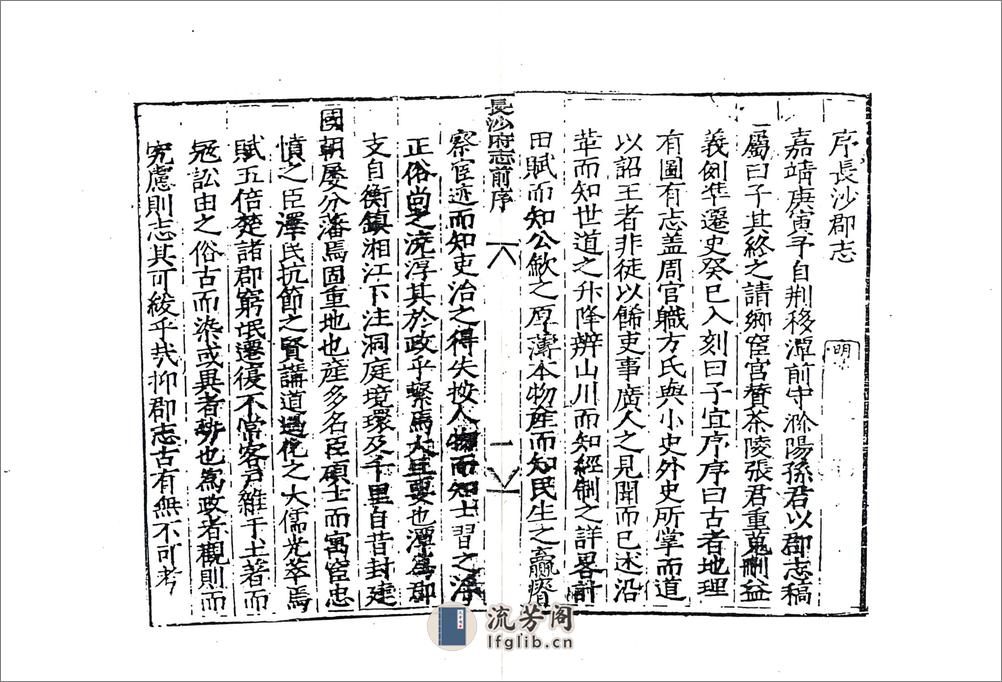 序長沙郡志
明
嘉靖庚寅予自荆移潭前守滁陽孫君以郡志稿
屬曰子其終之請鄉宦宮贊茶陵張君重蒐刪益
義例準遷史癸巳入刻曰子宜序序曰古者地理
有圖有志盖周官職方氏與小史外史所掌而道
以詔王者非徒以餙吏事廣人之見聞而已述沿
革而知世道之升降辨山川而知經制之詳畧計
田賦而知公歛之原薄本物産而知民生之贏瘠
長沙府志前序
八
一
察宦迹而知吏治之得失按人物而知士習之
正俗尚之澆淳其於政乎繫焉大且要也潭為郡
支自衡鎮湘江下注洞庭境環及千里自昔封建
國朝屡分藩焉固重地也産多名臣碩士而寓宦忠
憤之臣澤民抗節之賢講道過化之大儒光萃焉
賦五倍楚諸郡窮氓遷復不常客戸雜于土著而
冦訟由之俗古而染或異者勢也為政者觀則而
究慮則志其可緩乎㢤抑郡志古有無不可考
流芳阁
lfglib.cn